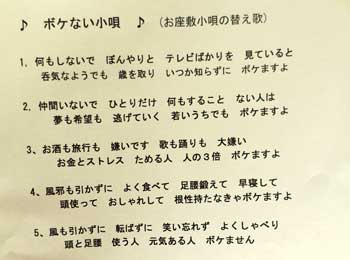 ♪ ボケない小唄 ♪ (お座敷小唄の替え歌)
1、何もしないで ぼんやりと テレビばかりを 見ていると
呑気なようでも 歳を取り いつか知らずに ボケますよ
2、仲間いないで ひとりだけ 何もすること ない人は
夢も希望も 逃げていく 若いうちでも ボケますよ
3、お酒も旅行も 嫌いです 歌も踊りも 大嫌い
お金とストレス ためる人 人の3倍 ボケますよ
4、風邪も引かずに よく食べて 足腰鍛えて 早寝して
頭使って おしゃれして 根性持たなきゃボケますよ
5、風も引かずに 転ばずに 笑い忘れず よくしゃべり
頭と足腰 使う人 元気ある人 ボケません